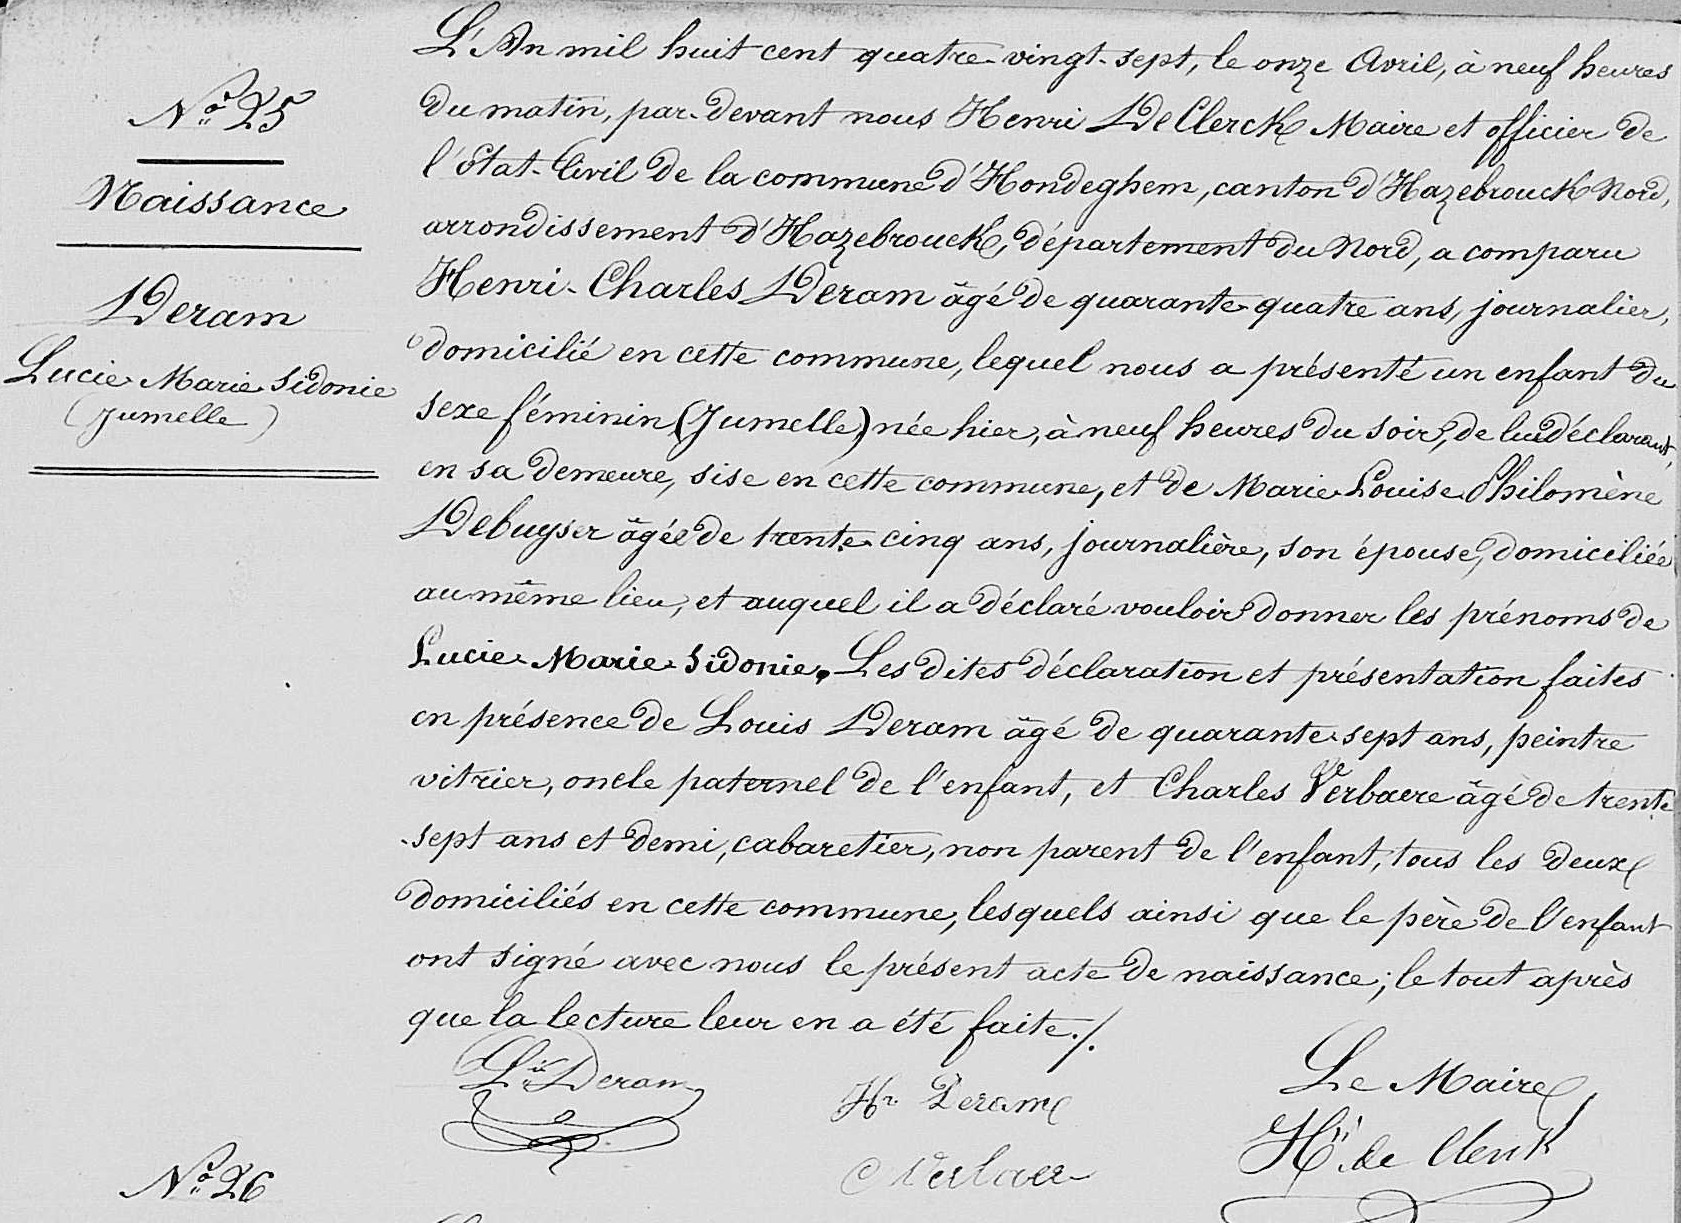 N° 25
Naissance
Deram
Lucie Marie Sidonie
(Jumelle)
L'An mil huit cent quatre-vingt-sept, le onze Avril, à neuf heures
du matin, par-devant nous Henri DeClerck Maire et officier de
l'Etat-Civil de la commune d'Hondeghem, canton d'Hazebrouck Nord,
arrondissement d'Hazebrouck, département du Nord, a comparu
Henri-Charles Deram âgé de quarante-quatre ans, journalier,
domicilié en cette commune, lequel nous a présenté un enfant du
sexe féminin (Jumelle) née hier, à neuf heures du soir, de lui déclarant,
en sa demeure, sise en cette commune, et de Marie Louise Philomène
Debuyser âgée de trente-cinq ans, journalière, son épouse, domiciliée
au même lieu, et auquel il a déclaré vouloir donner les prénoms de
Lucie-Marie-Sidonie. Les dites déclaration et présentation faites
en présence de Louis Deram âgé de quarante-sept ans, peintre
vitrier, oncle paternel de l'enfant, et Charles Verbaere âgé de trente
-sept ans et demi, cabaretier, non parent de l'enfant, tous les deux
domiciliés en cette commune, lesquels ainsi que le père de l'enfant
ont signé avec nous le présent acte de naissance; le tout après
que la lecture leur en a été faite./.
Ls Deram
Hri Deram
Le Maire
C Verbaere
Hri de Clerck
N° 26